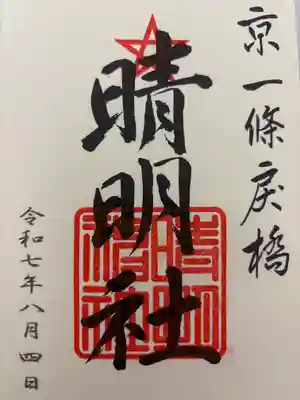 京一條戻橋
晴明社
令和七年八月四日